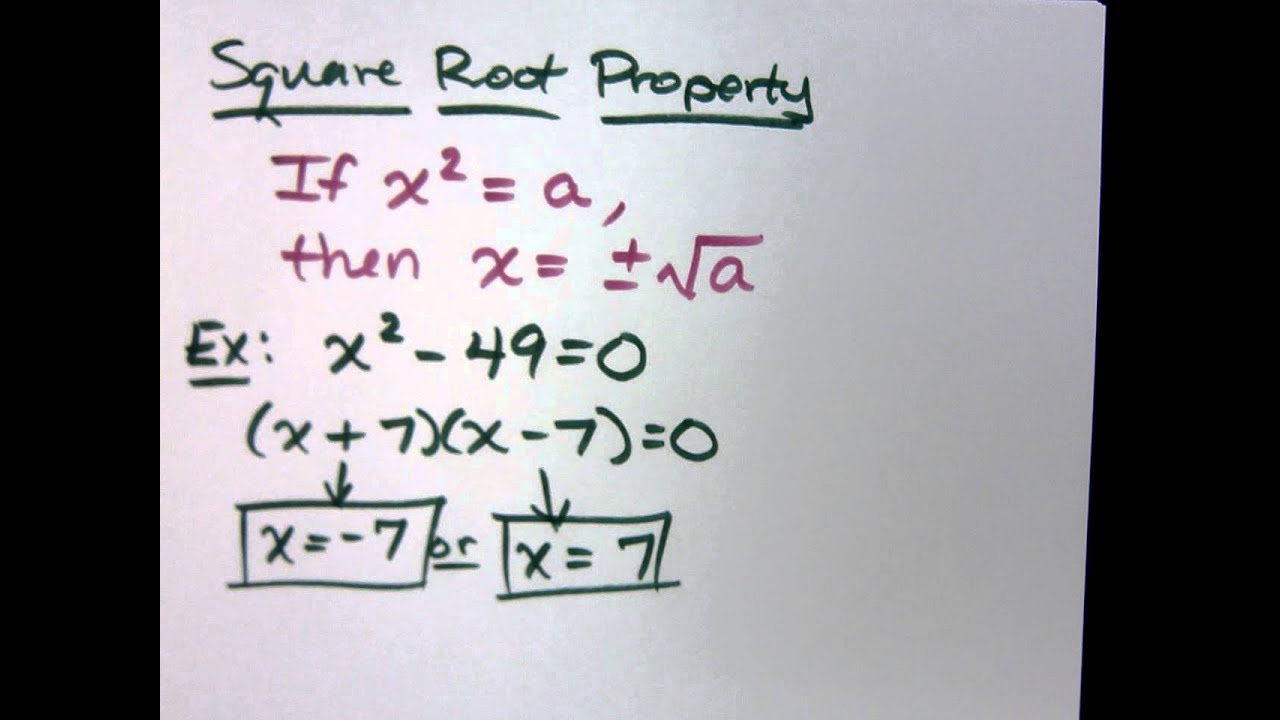 Square Root Property
If x² = a,
then x = ±√a
Ex: x² - 49 = 0
(x + 7)(x - 7) = 0
x = -7 or x = 7